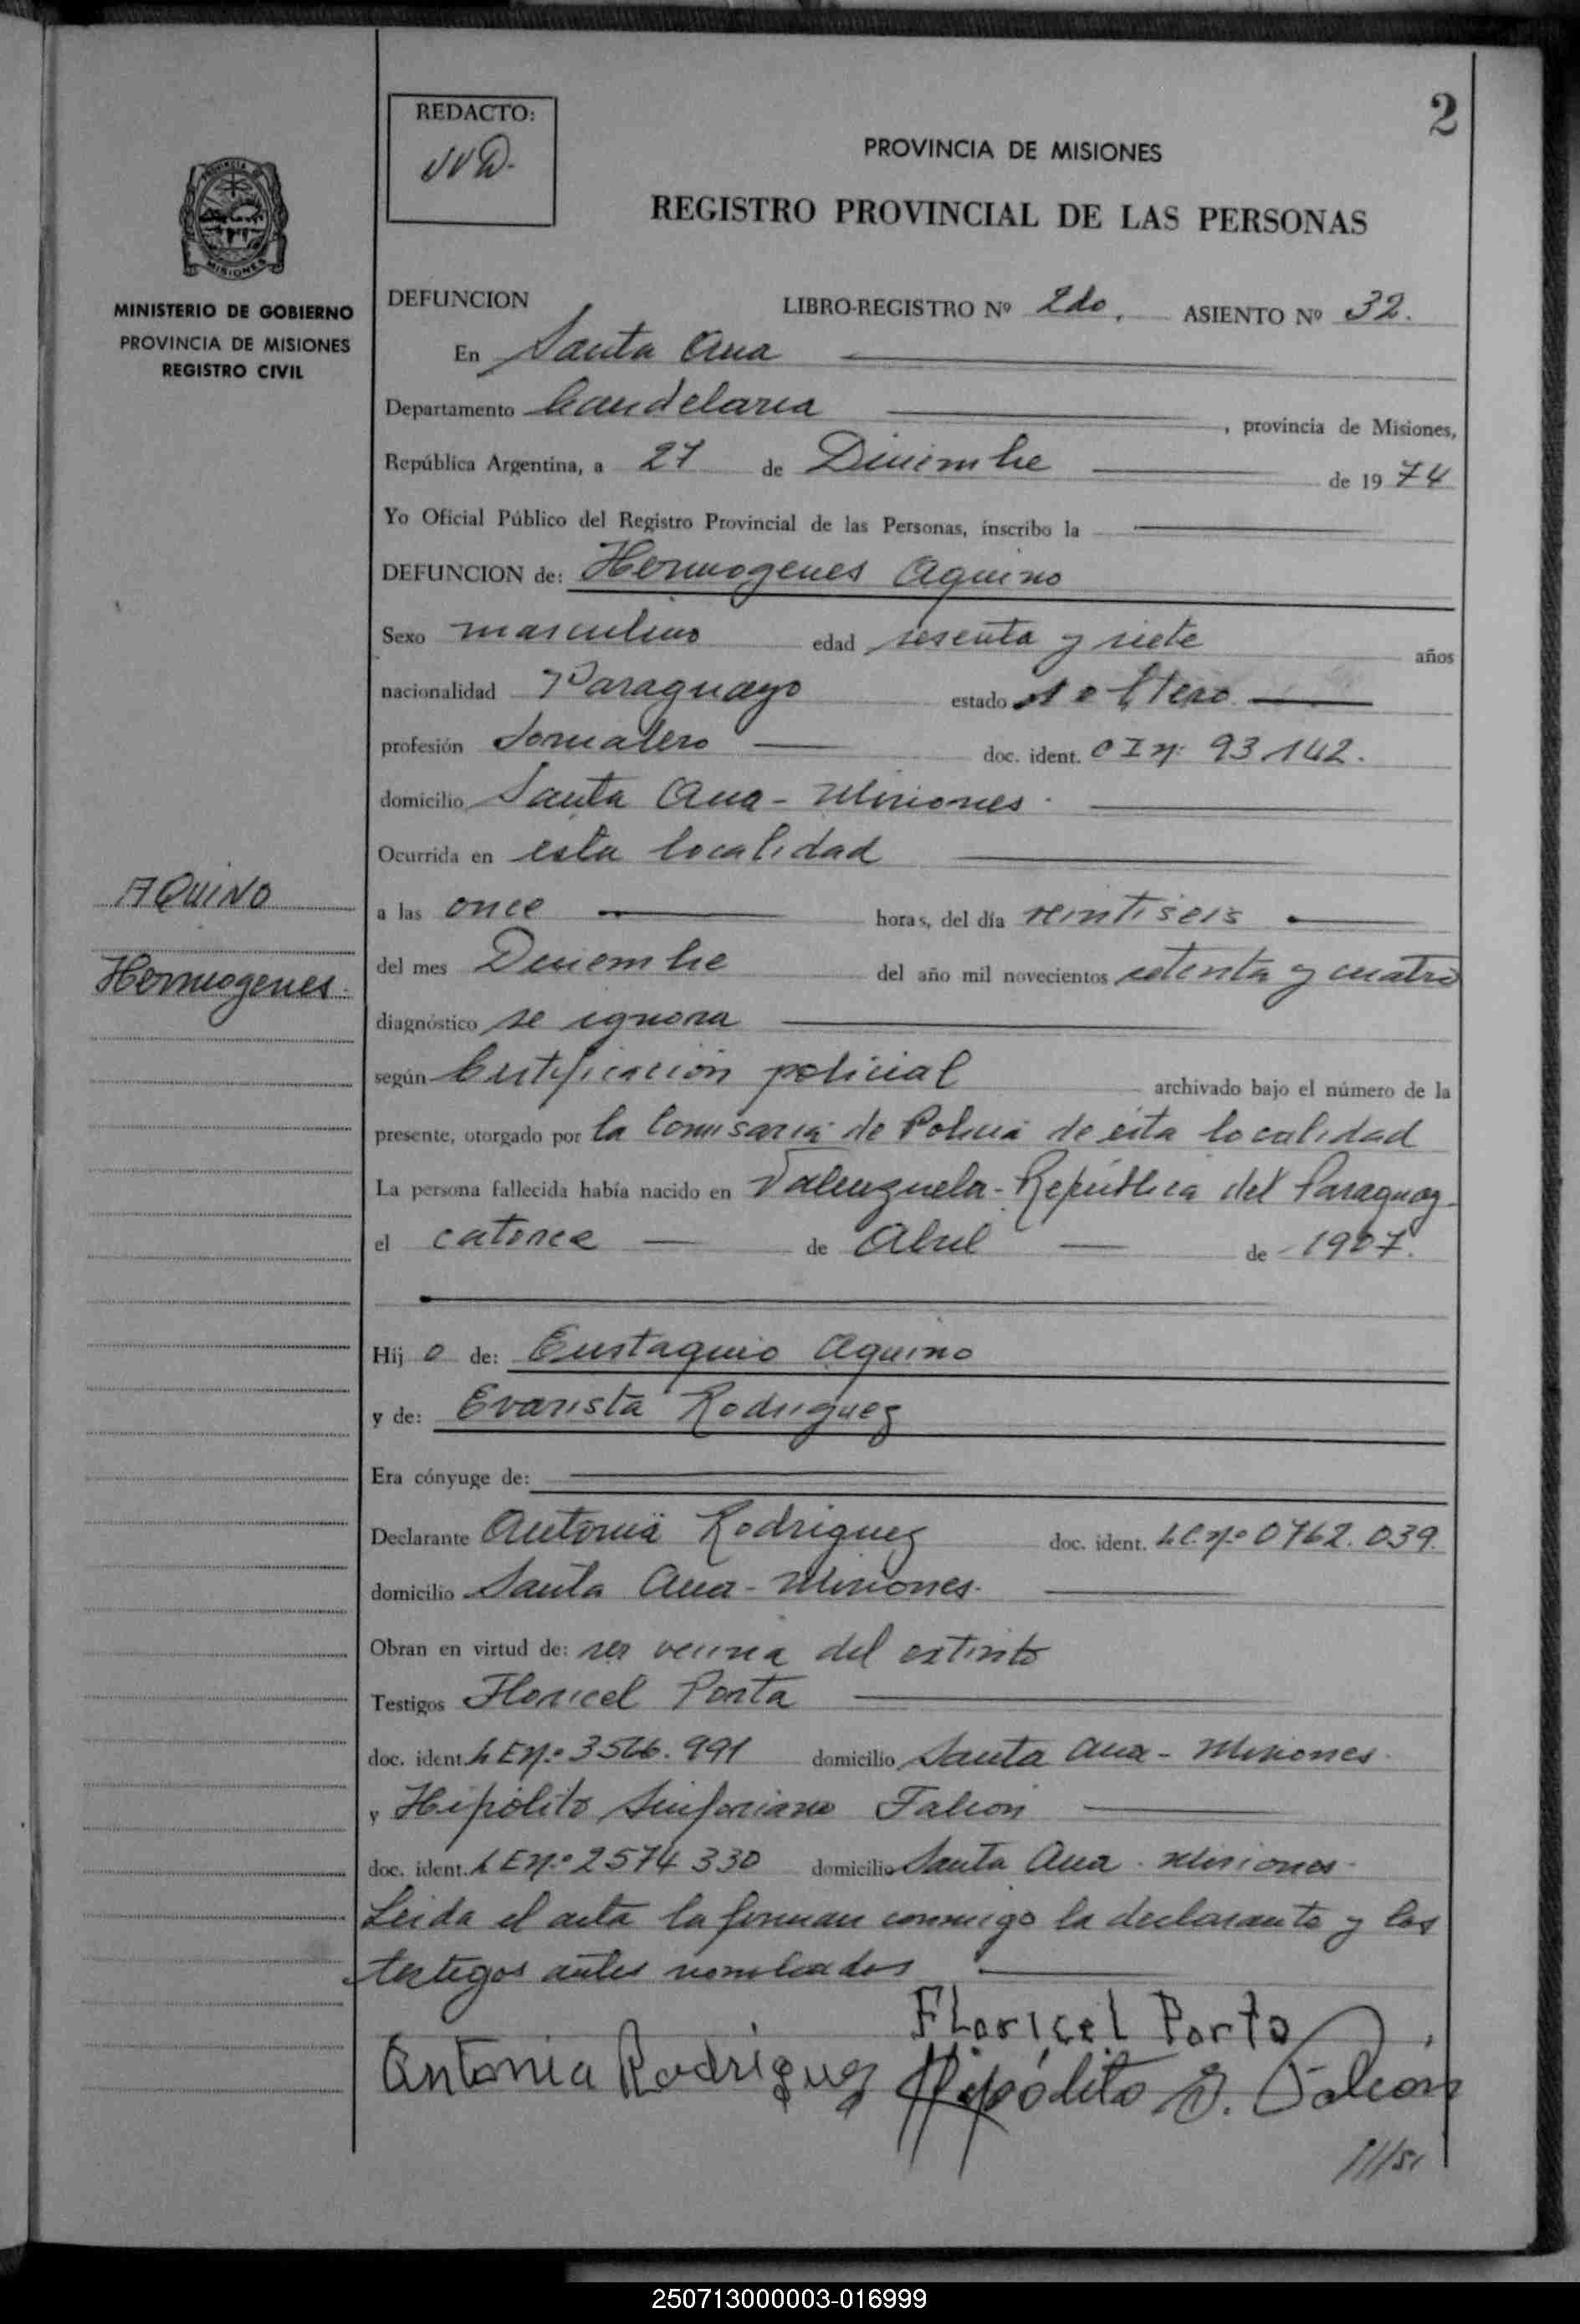 2
REDACTO:
PROVINCIA DE MISIONES
REGISTRO PROVINCIAL DE LAS PERSONAS
MISIONES
MINISTERIO DE GOBIERNO
PROVINCIA DE MISIONES
REGISTRO CIVIL
DEFUNCION LIBRO-REGISTRO Nº 2do. ASIENTO Nº 32.
En Santa Ana
Departamento Candelaria , provincia de Misiones,
República Argentina, a 27 de Diciembre de 1974
Yo Oficial Público del Registro Provincial de las Personas, inscribo la
DEFUNCION de: Hermogenes Aquino
Sexo masculino edad sesenta y siete años
nacionalidad Paraguayo estado soltero
profesión Jornalero doc. ident. C I nº 93.142.
domicilio Santa Ana - Misiones.
Ocurrida en esta localidad
AQUINO
a las once horas, del día veintiseis
Hermogenes
del mes Diciembre del año mil novecientos setenta y cuatro
diagnóstico se ignora
según Certificación policial archivado bajo el número de la
presente, otorgado por la Comisaria de Policia de esta localidad
La persona fallecida había nacido en Valenzuela - República del Paraguay -
el catorce de Abril de 1907.
Hij o de: Eustaquio Aquino
y de: Evarista Rodriguez
Era cónyuge de:
Declarante Antonia Rodriguez doc. ident. L C. nº 0762.039.
domicilio Santa Ana - Misiones.
Obran en virtud de: ser vecina del extinto
Testigos Floricel Porta
doc. ident. L E nº 3566.991 domicilio Santa Ana - Misiones.
y Hipólito Sinforiano Falcón
doc. ident. L E nº 2574 330 domicilio Santa Ana - Misiones.
Leida el acta la firman conmigo la declarante y los
testigos antes nombrados
Floricel Porta
Antonia Rodriguez Hipólito S. Falcón
250713000003-016999